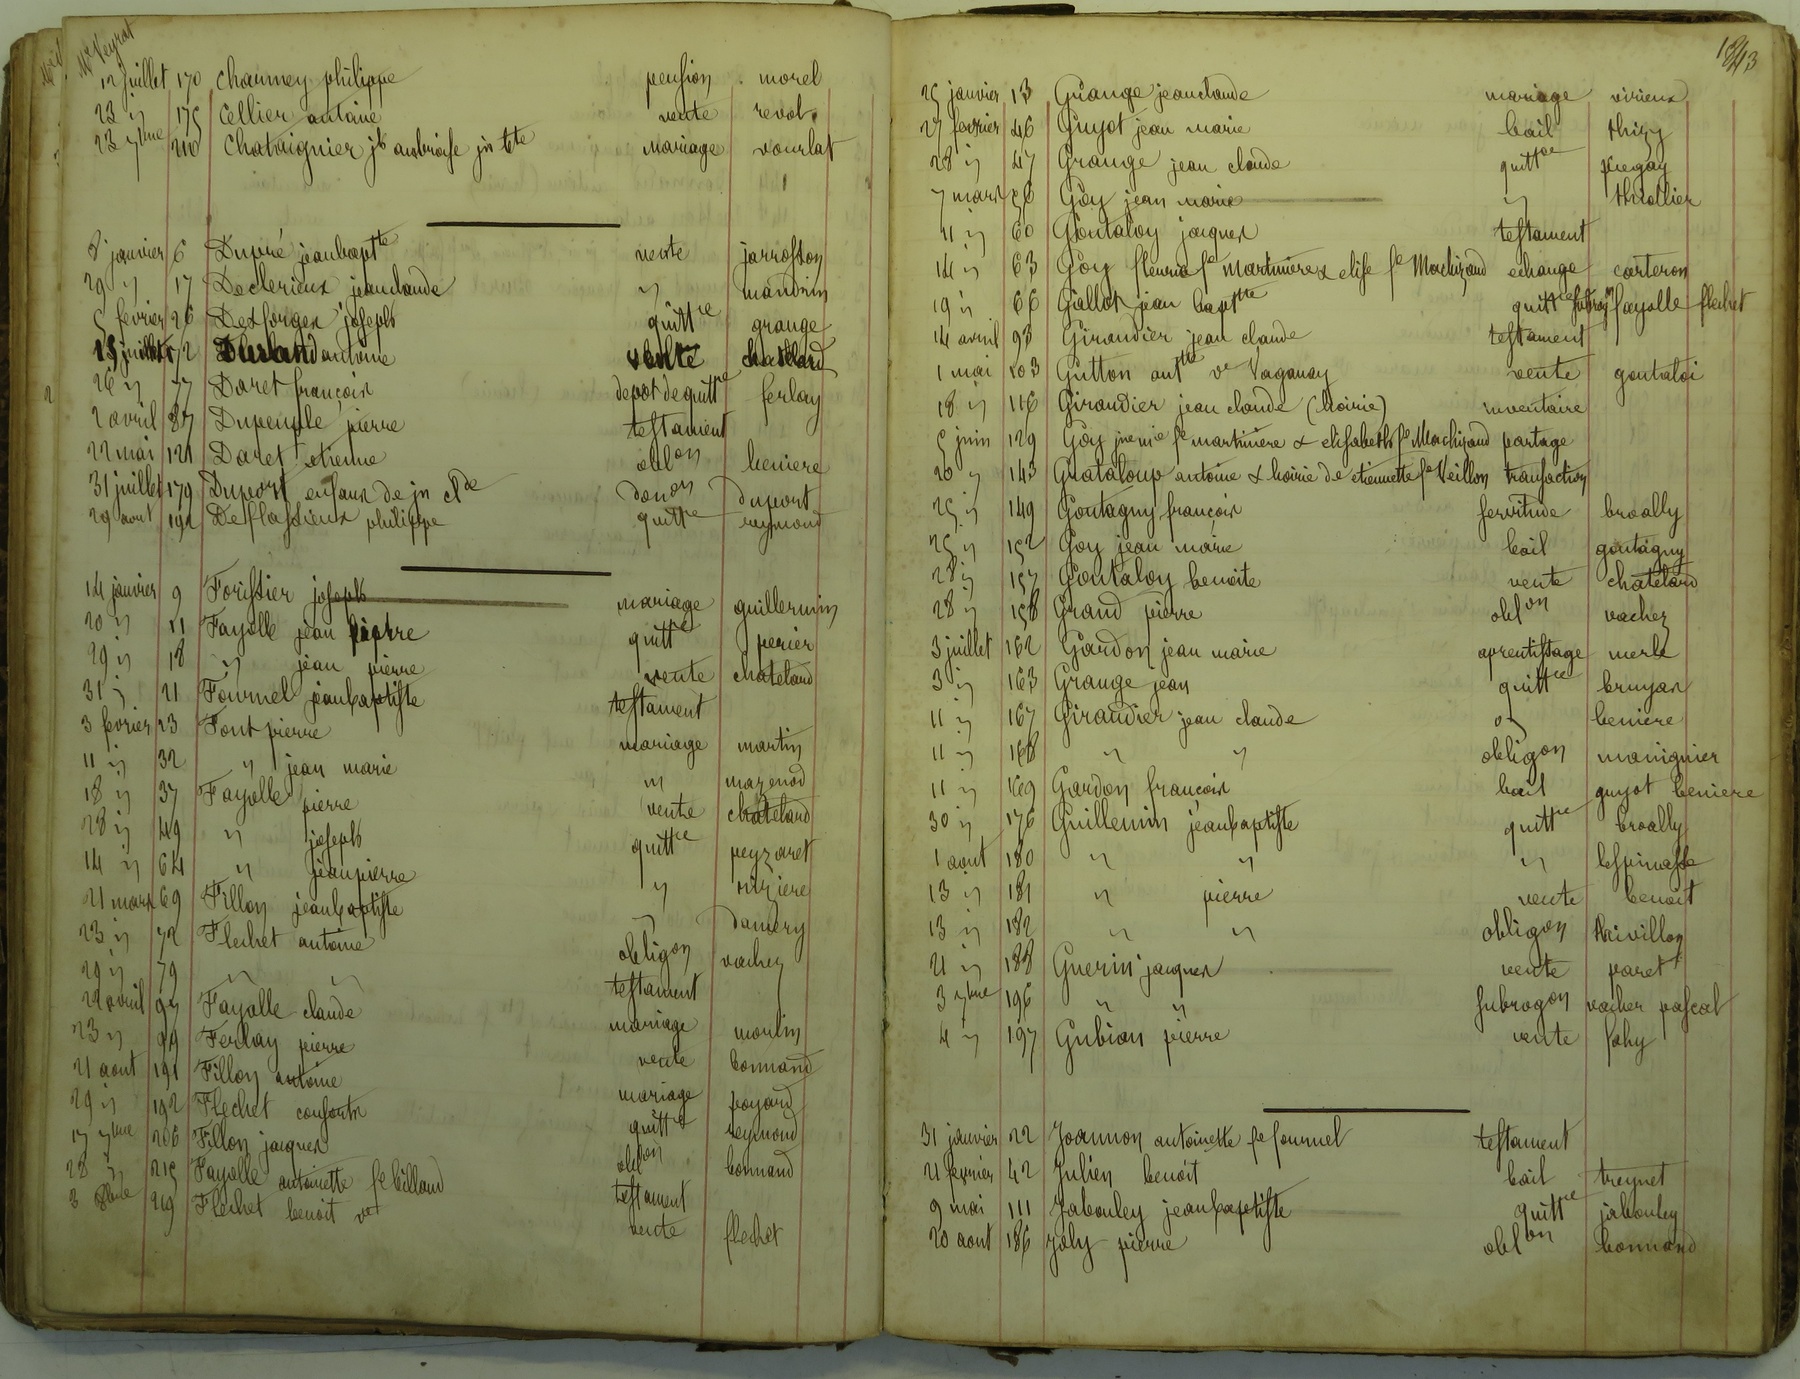 Mr Veyrat
12 juillet 170 Chaumey philippe pension morel
23 " 175 Cellier antoine vente revol
23 7bre 210 Chataignier jh ambroise jn bte mariage vourlat
8 janvier 6 Dupré jeanbaptte vente jarrosson
29 " 17 Declerieux jeanclaude " mandrin
5 fevrier 26 Desforges joseph quittce grange
antoine vente chatelard
26 " 77 Daret françois depot de quittce ferlay
2 avril 87 Dupeuple pierre testament
22 mai 121 Daret etienne oblon beniere
31 juillet 179 Duport enfans de jn clde donon Duport
29 aout 192 Deflassieux philippe quittce reymond
14 janvier 9 Forissier joseph mariage guillermin
20 " 11 Fayolle jean pierre quittce perier
29 " 18 " jean pierre vente chatelard
31 " 21 Fournel jeanbaptiste testament
3 fevrier 23 Font pierre mariage martin
11 " 32 " jean marie " mazenod
18 " 37 Fayolle pierre vente chatelard
28 " 49 " joseph quittce peyzaret
14 " 64 " jeanpierre " riziere
21 mars 69 Fillon jeanbaptiste " Damery
23 " 72 Flechet antoine obligon vacher
29 " 79 " " testament
22 avril 97 Fayolle claude mariage moulin
23 " 99 Ferlay pierre vente bonnand
21 aout 191 Fillon antoine mariage poyard
29 " 192 Flechet consorts quittce reymond
17 7bre 206 Fillon jacques oblon bonnand
28 " 215 Fayolle antoinette fe billaud testament
3 8bre 219 Flechet benoit ve vente flechet
1843
25 janvier 13 Grange jeanclaude mariage virieux
27 fevrier 46 Guyot jean marie bail thizy
28 " 47 Grange jean claude quittce piegay
7 mars 56 Goy jean marie " thiollier
11 " 60 Goutaloy jacques testament
14 " 63 Goy fleurie fe Martiniere & elise fe Machizaud echange carteron
19 " 66 Gallot jean baptte quittce subrogon fayolle flechet
14 avril 93 Giraudier jean claude testament
1 mai 103 Gutton antte ve Vaganay vente goutaloi
18 " 116 Giraudier jean claude (hoirie) inventaire
5 juin 129 Goy jne mie fe martiniere & elisabeth fe Machizaud partage
20 " 143 Grataloup antoine & hoirie de etiennette fe Veillon transaction
25 " 149 Goutagny françois servitude broally
25 " 152 Goy jean marie bail goutagny
28 " 157 Goutaloy benoite vente chatelard
28 " 158 Grand pierre oblon vacher
3 juillet 162 Gardon jean marie aprentissage merle
3 " 163 Grange jean quittce bruyas
11 " 167 Giraudier jean claude beniere
11 " 168 " " obligon maniguier
11 " 169 Gardon françois bail guyot beniere
30 " 176 Guillermin jeanbaptiste quittce broally
1 aout 180 " " " lespinasse
13 " 181 " pierre vente benoit
13 " 182 " " obligon thivillon
21 " 188 Guerin jacques vente paret
3 7bre 196 " " subrogon vacher pascal
4 " 197 Gubian pierre vente fahy
31 janvier 22 Joannon antoinette fe fournel testament
21 fevrier 42 Julien benoit bail treynet
9 mai 111 Jabouley jeanbaptiste quittce jabouley
20 aout 186 Joly pierre oblon bonnand